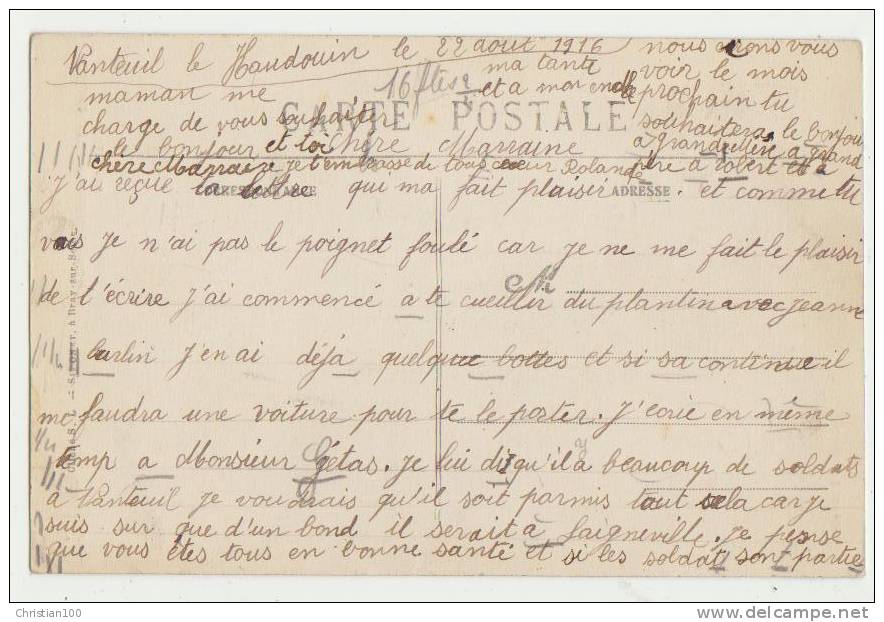 Nanteuil le Haudouin le 22 aout 1916
16 ftes
CARTE POSTALE
Chère Marraine
J'ai reçue ta lettre qui ma fait plaisir. et comme tu
CORRESPONDANCE
ADRESSE
vois je n'ai pas le poignet foulé car je ne me fait le plaisir
de t'écrire j'ai commencé a te cueillir du plantin avec jeanne
barlin j'en ai déjà quelque bottes et si sa continue il
me faudra une voiture pour te le porter. J'ecrie en même
temp a Monsieur Gétas. je lui dis qu'il a beaucoup de soldats
à Nanteuil je voudrais qu'il soit parmis tout sela car je
suis sur que d'un bond il serait à Saigneville. je pense
que vous êtes tous en bonne santé et si les soldat sont partie
nous irons vous
voir le mois
prochain tu
souhaiteras le bonjour
a grand mère a grand
père a robert et a
ma tante
et a mon oncle
maman me
charge de vous souhaiter
le bonjour et toi
chère Marraine je t'embrasse de tous coeur Rolande
Christian100
delcampe.net